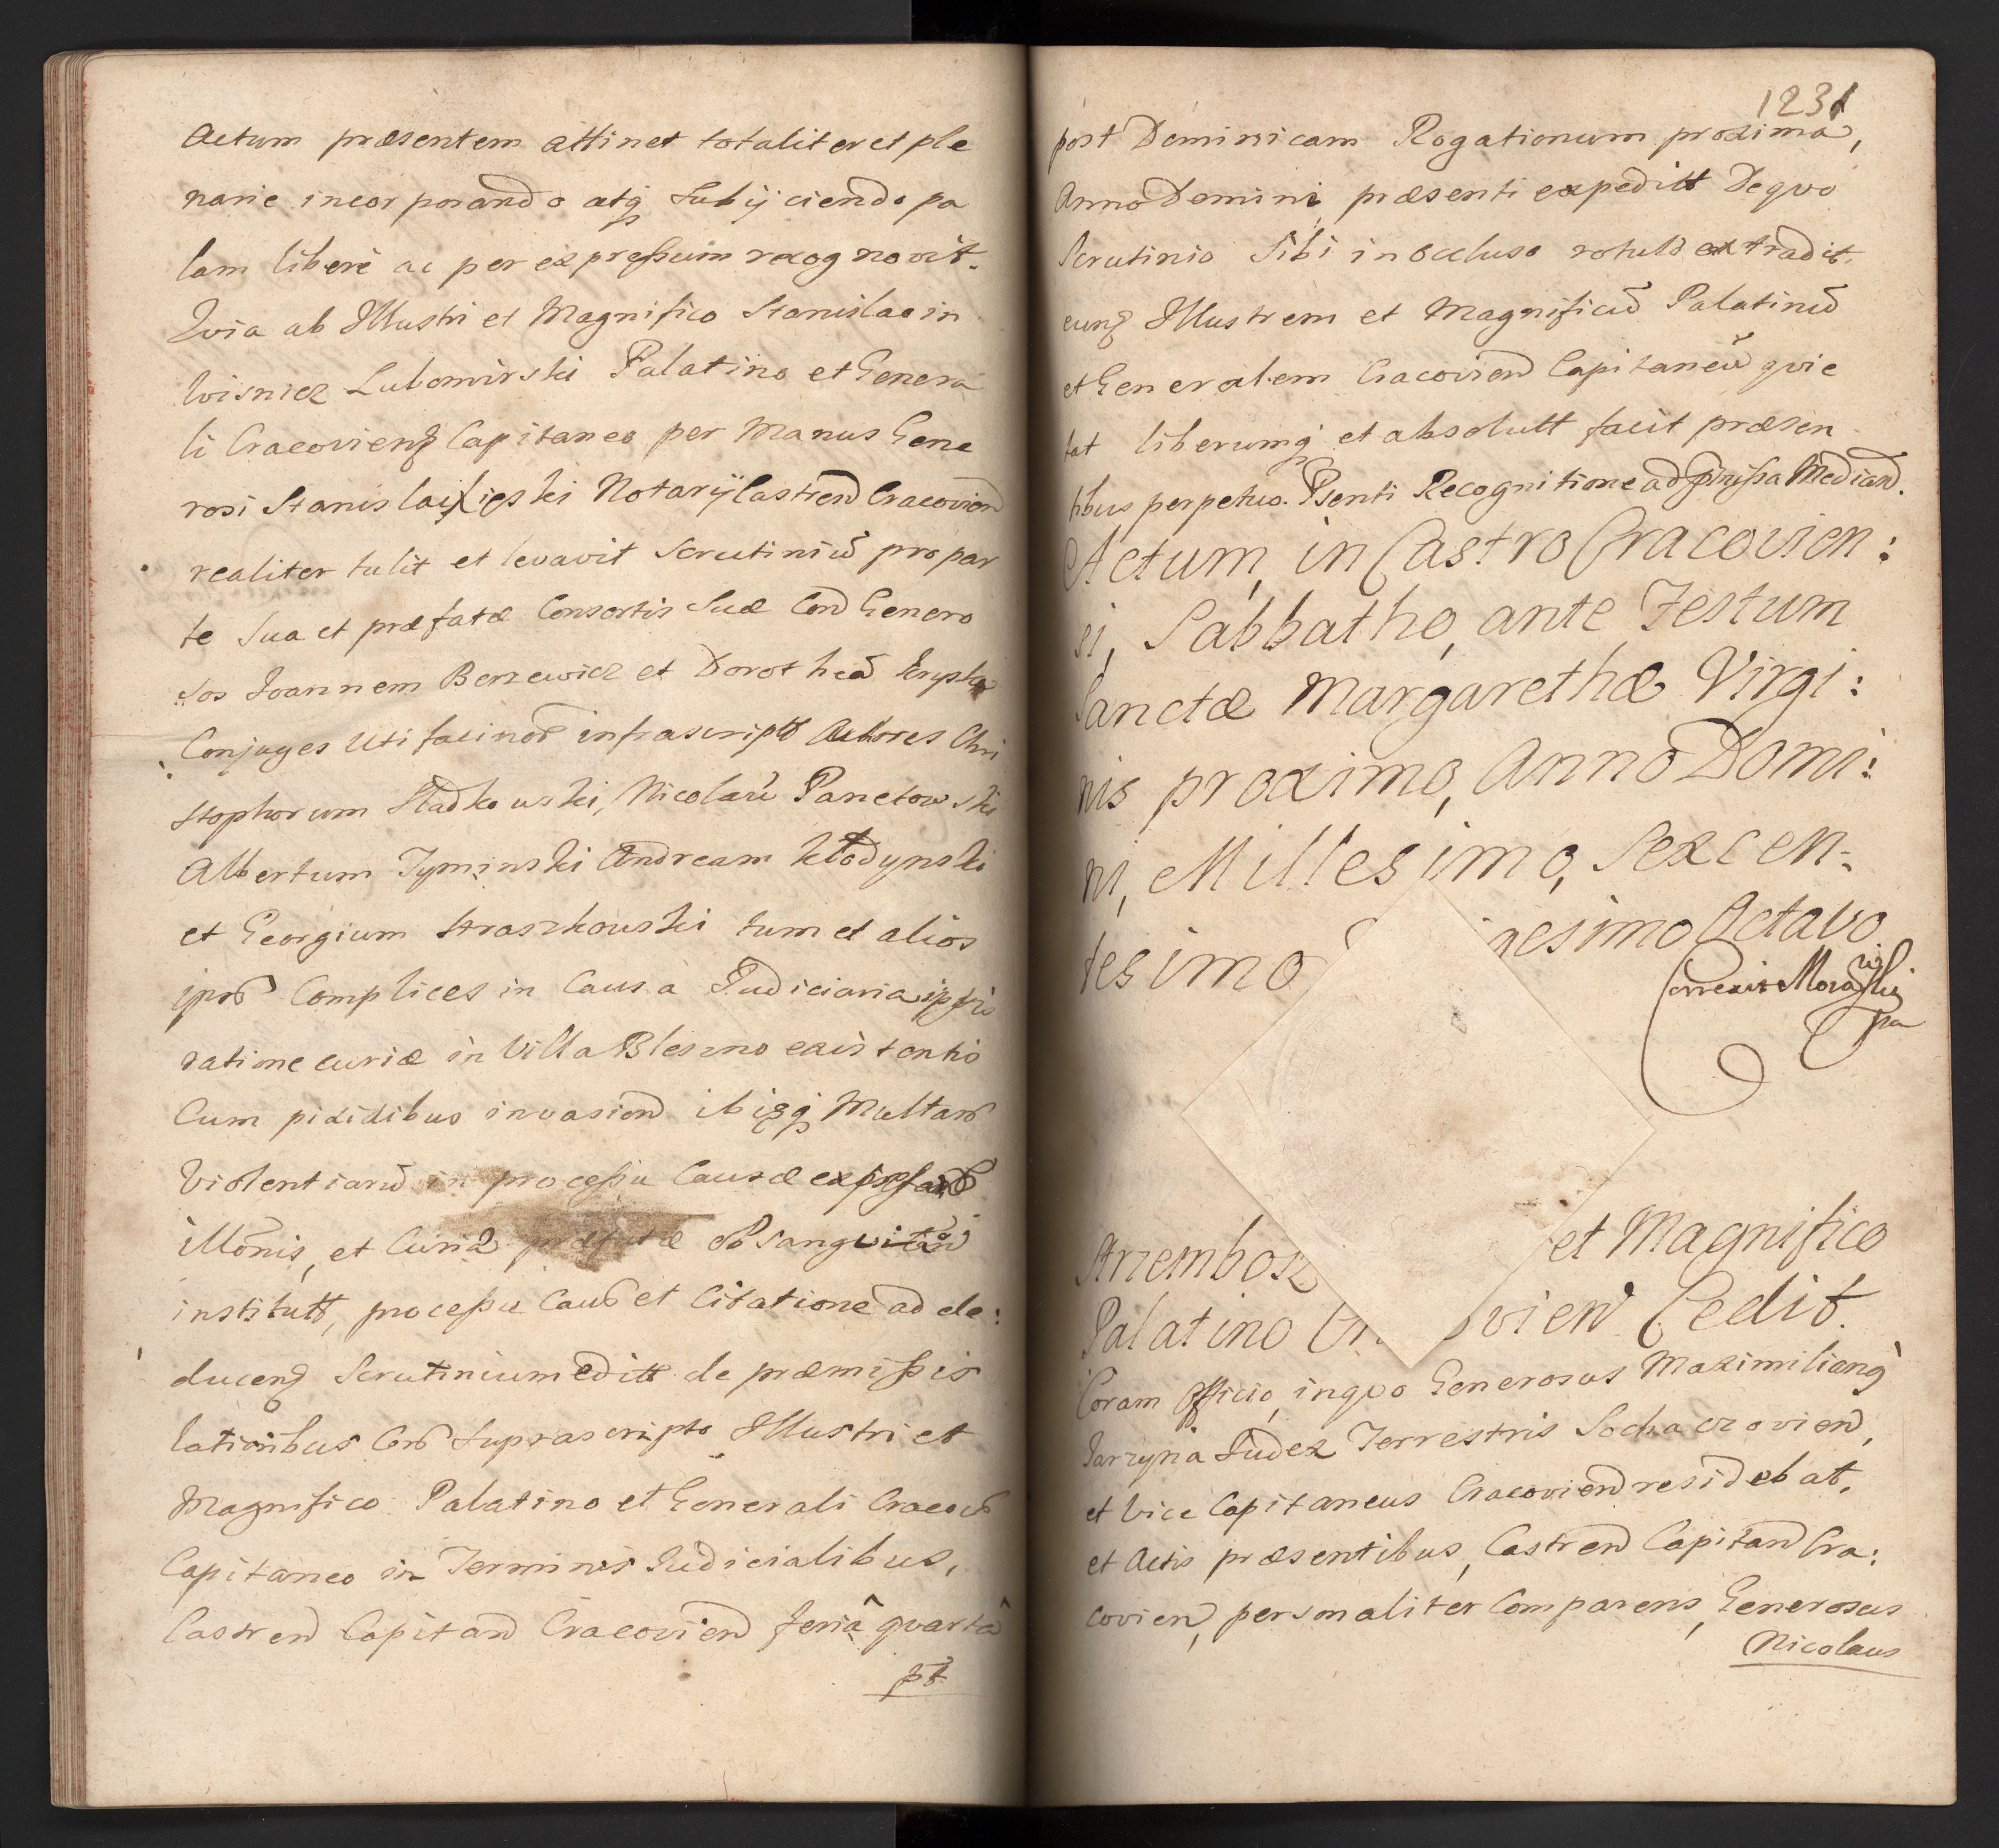 Actum præsentem attinet totaliter et ple
narie incorporando atq subijciendo pa
lam liberè ac per expressum recognovit.
Quia ab Illustri et Magnifico Stanislao in
Wisnicz Lubomirski Palatino et Genera
li Cracovien Capitaneo per Manus Gene
rosi Stanislai Notarij Castren Cracovien
realiter tulit et levavit Scrutiniū pro par
te Sua et præfatæ Consortis Suæ Con Genero
sos Joannem Berzewicz et Dorotheā
Conjuges Uti facinor infrascript Authores Chri
stophorum Sladkowski, Nicolaū Panetowski
Albertum Tyminski Andream Kłodynski
et Georgium Straszkowski tum et alios
ipor Complices in Causa Judiciaria ipsis
ratione curiæ in Villa Bleszno existentis
Cum pixidibus invasion ibiqz Multar
Violentiarū in processu Causæ expressar
illōnis, et Curiæ præfatæ
institutt, processu Caus et Citatione ad de:
ducen Scrutinium editt de præmissis
lationibus Cor suprascripto Illustri et
Magnifico Palatino et Generali Cracov
Capitaneo in Terminis Judicialibus,
Castren Capitan Cracovien feriâ quartâ
pt
1231
post Dominicam Rogationum proximâ,
Anno Domini præsenti expeditt De quo
Scrutinio Sibi in occluso rotulo extradit.
eunq Illustrem et Magnificū Palatinū
et Generalem Cracovien Capitaneū quie
tat liberumq et absolutt facit præsen
tibus perpetuo. Psenti Recognitione ad pmissa Median.
Actum, in Castro Cracovien:
si, Sabbatho, ante Festum
Sanctæ Margarethæ Virgi:
nis proximo, Anno Domi:
ni, Millesimo, Sexcen-
tesimo gesimo Octavo
Correxit
Strzembosz et Magnifico
Palatino Cra vien Cedit.
Coram Officio, in quo Generosus Maximilian9
Jarzyna Judex Terrestris Sochaczovien,
et Vice Capitaneus Cracovien residebat,
et Actis præsentibus, Castren Capitan Cra:
covien, personaliter Comparens, Generosus
Nicolaus